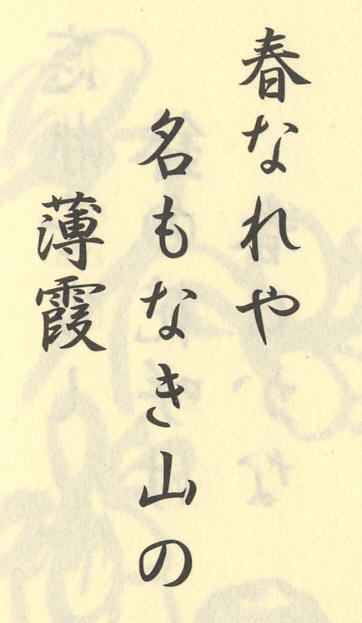 春なれや
名もなき山の
薄霞